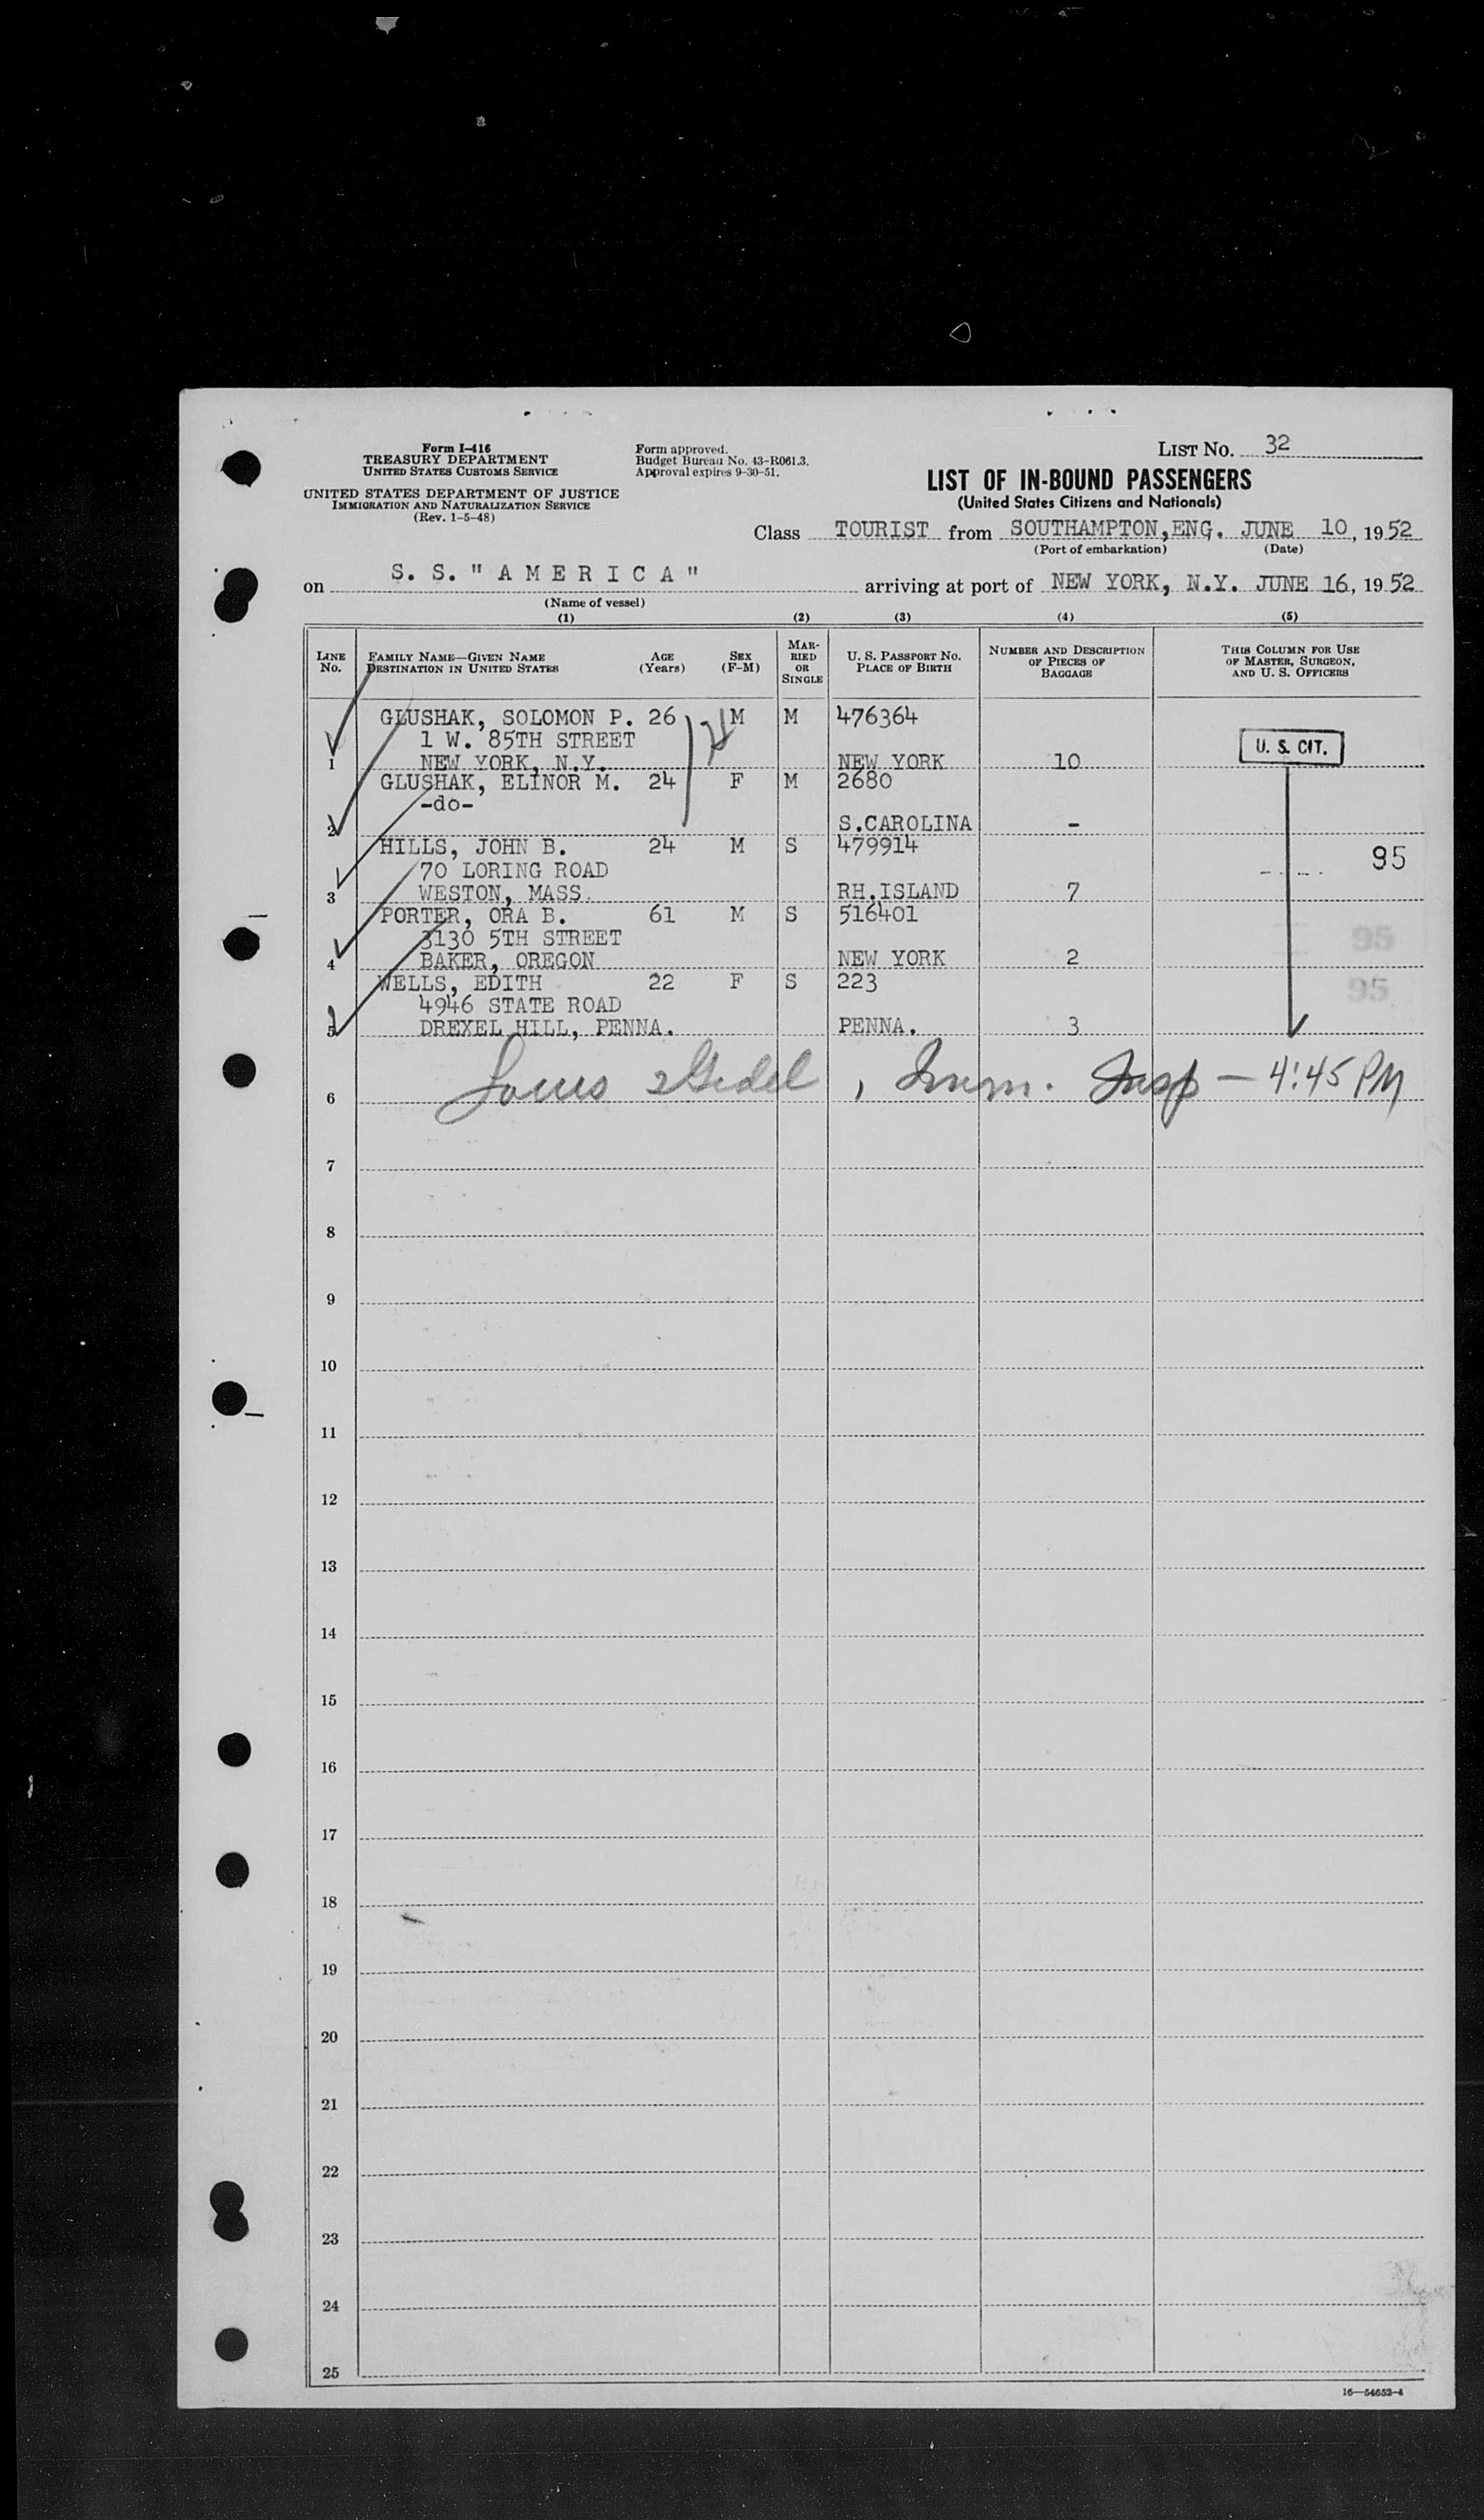 Form I-416
TREASURY DEPARTMENT
UNITED STATES CUSTOMS SERVICE
UNITED STATES DEPARTMENT OF JUSTICE
IMMIGRATION AND NATURALIZATION SERVICE
(Rev. 1-5-48)
Form approved.
Budget Bureau No. 43-R061.3.
Approval expires 9-30-51.
LIST NO. 32
LIST OF IN-BOUND PASSENGERS
(United States Citizens and Nationals)
Class TOURIST from SOUTHAMPTON, ENG. JUNE 10, 1952
(Port of embarkation) (Date)
on S. S. "AMERICA" arriving at port of NEW YORK, N.Y. JUNE 16, 1952
(Name of vessel)
(1) (2) (3) (4) (5)
LINE No. FAMILY NAME—GIVEN NAME DESTINATION IN UNITED STATES AGE (Years) SEX (F-M) MARRIED OR SINGLE U. S. PASSPORT NO. PLACE OF BIRTH NUMBER AND DESCRIPTION OF PIECES OF BAGGAGE THIS COLUMN FOR USE OF MASTER, SURGEON, AND U. S. OFFICERS
GLUSHAK, SOLOMON P. 26 M M 476364
1 W. 85TH STREET U. S. CIT.
1 NEW YORK, N.Y. NEW YORK 10
GLUSHAK, ELINOR M. 24 F M 2680
-do-
2 S.CAROLINA -
HILLS, JOHN B. 24 M S 479914
70 LORING ROAD 95
3 WESTON, MASS. RH.ISLAND 7
PORTER, ORA B. 61 M S 516401
3130 5TH STREET 95
4 BAKER, OREGON NEW YORK 2
WELLS, EDITH 22 F S 223 95
4946 STATE ROAD
5 DREXEL HILL, PENNA. PENNA. 3
6 Louis , Imm. Insp — 4:45 PM
7
8
9
10
11
12
13
14
15
16
17
18
19
20
21
22
23
24
25
16—54652-4